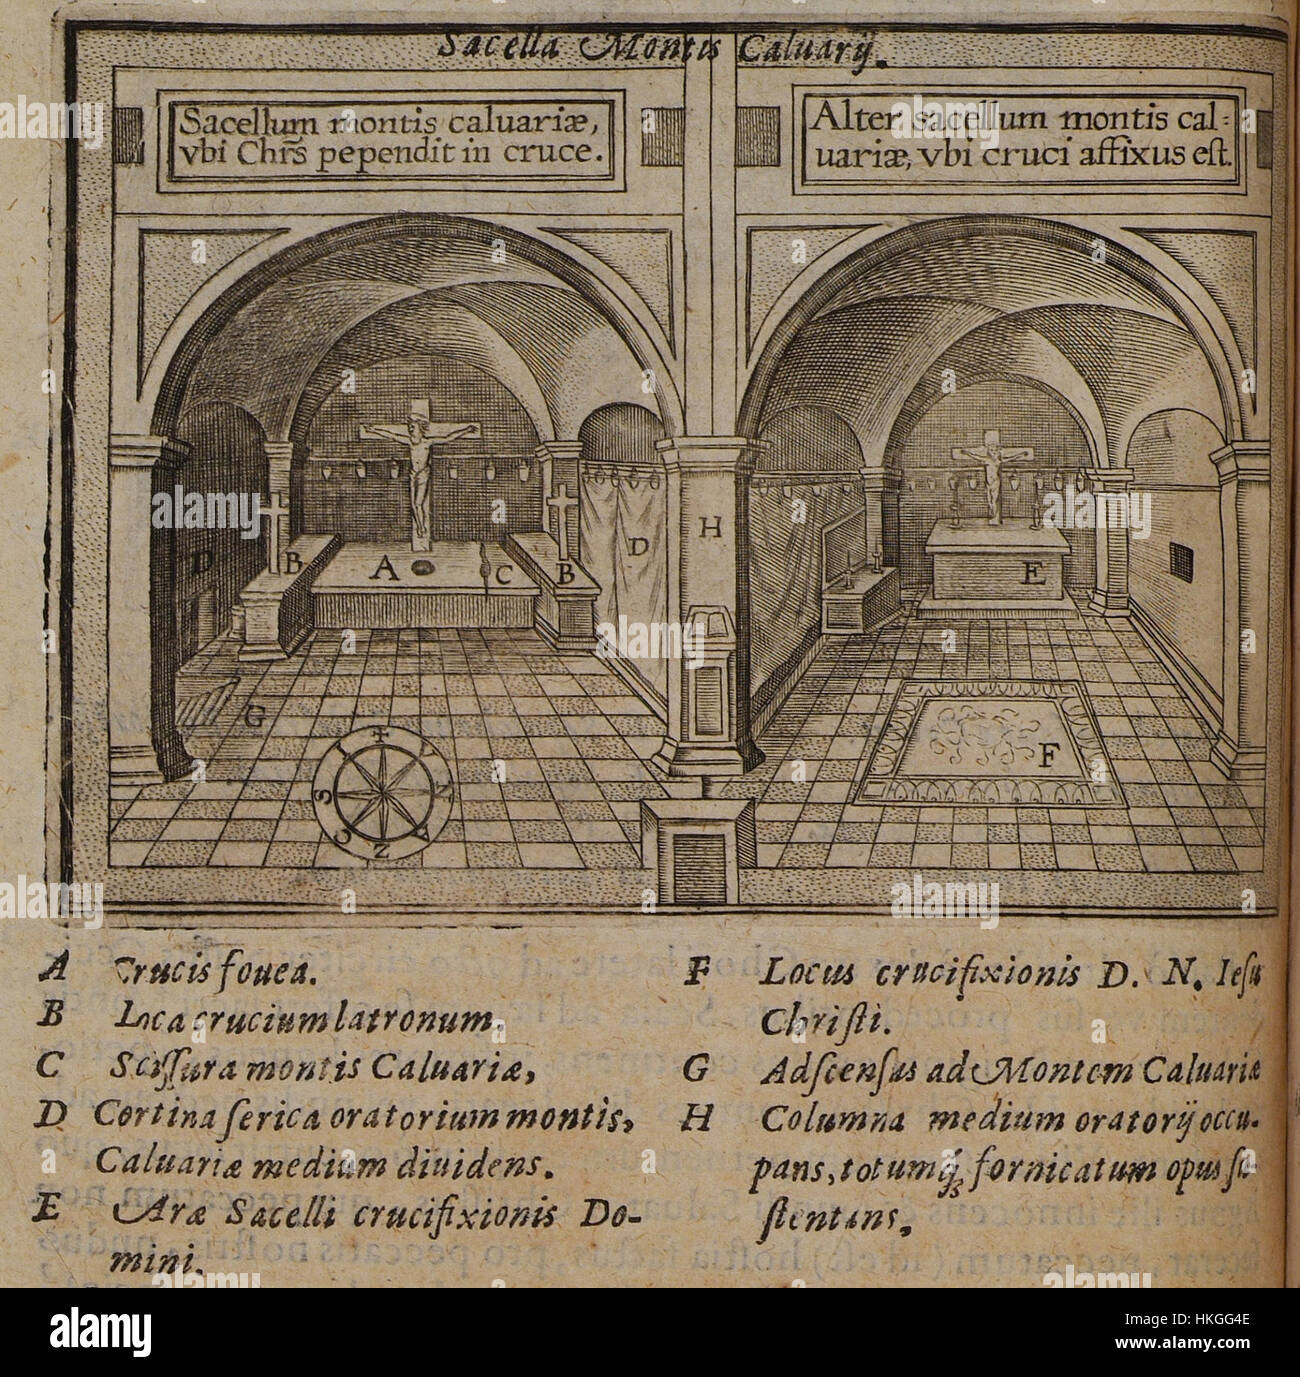 Sacella Montis Caluarij.
Sacellum montis caluariæ,
vbi Chrs̃ pependit in cruce.
Alter sacellum montis cal:
uariæ, vbi cruci affixus est.
D
B
A
C
B
D
H
E
G
F
S
O
Z
A Crucis fouea.
B Loca crucium latronum.
C Scissura montis Caluariæ,
D Cortina serica oratorium montis,
Caluariæ medium diuidens.
E Aræ Sacelli crucifixionis Do-
mini.
F Locus crucifixionis D. N. Iesu
Christi.
G Adscensus ad Montem Caluariæ
H Columna medium oratorij occu-
pans, totumq́; fornicatum opus su-
stentans,
alamy
a
alamy
Image ID: HKGG4E
www.alamy.com